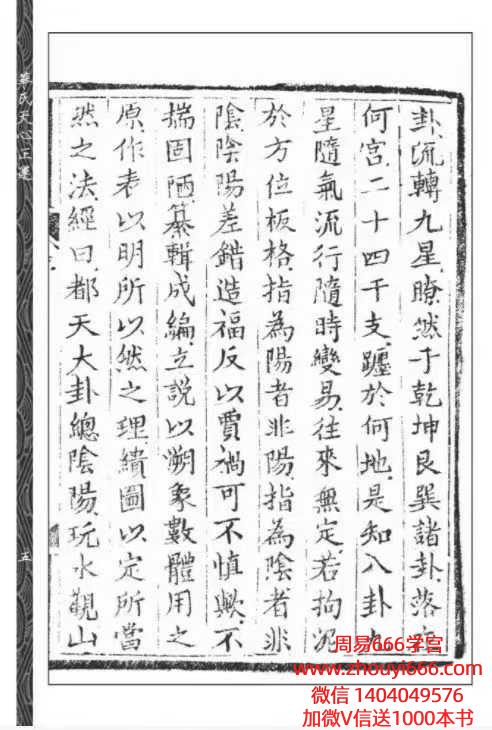 卦流轉九星瞭然于乾坤艮巽諸卦落在
何宮二十四干支躔於何地是知八卦九
星隨氣流行隨時變易往來無定若拘泥
於方位板格指為陽者非陽指為陰者非
陰陰陽差錯造福反以賈禍可不慎歟不
揣固陋纂輯成編立說以溯象數體用之
原作表以明所以然之理繢圖以定所當
然之法經曰都天大卦總陰陽玩水觀山
華氏天心正運
五
周易666学官
www.zhouyi666.com
微信 1404049576
加微V信送1000本书